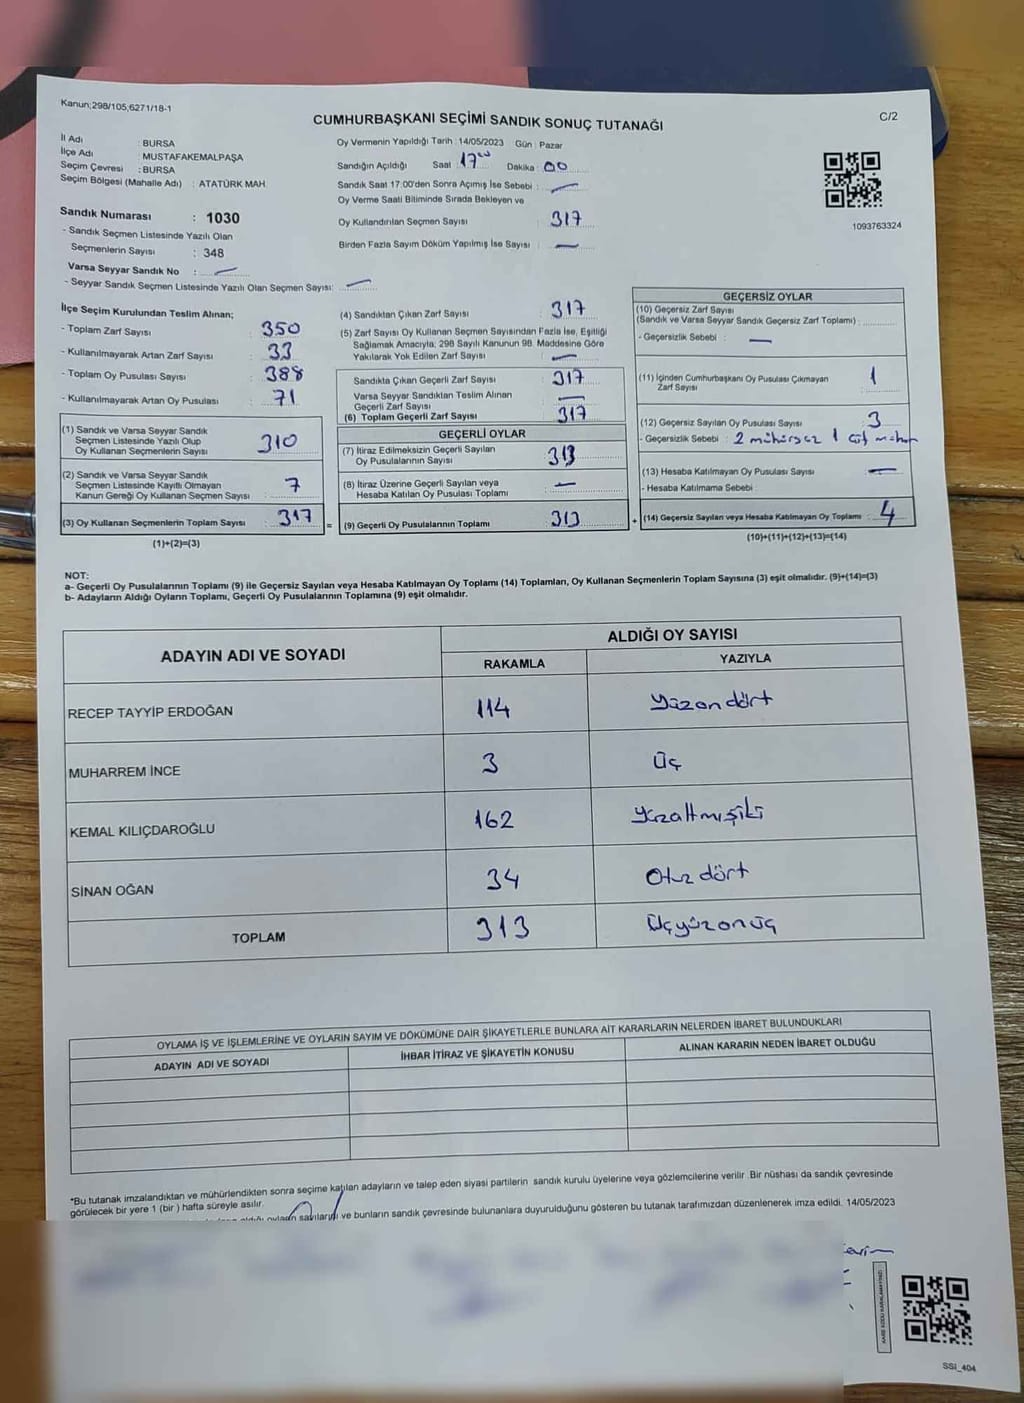 Kanun;298/105,6271/18-1
CUMHURBAŞKANI SEÇİMİ SANDIK SONUÇ TUTANAĞI
C/2
İl Adı : BURSA
İlçe Adı : MUSTAFAKEMALPAŞA
Seçim Çevresi : BURSA
Seçim Bölgesi (Mahalle Adı) : ATATÜRK MAH.
Sandık Numarası : 1030
- Sandık Seçmen Listesinde Yazılı Olan
Seçmenlerin Sayısı : 348
Varsa Seyyar Sandık No : —
- Seyyar Sandık Seçmen Listesinde Yazılı Olan Seçmen Sayısı: —
Oy Vermenin Yapıldığı Tarih : 14/05/2023 Gün : Pazar
Sandığın Açıldığı Saat : 17⁰⁰ Dakika : 00
Sandık Saat 17:00'den Sonra Açımış İse Sebebi : —
Oy Verme Saati Bitiminde Sırada Bekleyen ve
Oy Kullandırılan Seçmen Sayısı : 317
Birden Fazla Sayım Döküm Yapılmış İse Sayısı : —
1093763324
İlçe Seçim Kurulundan Teslim Alınan;
- Toplam Zarf Sayısı : 350
- Kullanılmayarak Artan Zarf Sayısı : 33
- Toplam Oy Pusulası Sayısı : 388
- Kullanılmayarak Artan Oy Pusulası : 71
(1) Sandık ve Varsa Seyyar Sandık
Seçmen Listesinde Yazılı Olup
Oy Kullanan Seçmenlerin Sayısı : 310
(2) Sandık ve Varsa Seyyar Sandık
Seçmen Listesinde Kayıtlı Olmayan
Kanun Gereği Oy Kullanan Seçmen Sayısı : 7
(3) Oy Kullanan Seçmenlerin Toplam Sayısı : 317
(1)+(2)=(3)
(4) Sandıktan Çıkan Zarf Sayısı : 317
(5) Zarf Sayısı Oy Kullanan Seçmen Sayısından Fazla İse, Eşitliği
Sağlamak Amacıyla; 298 Sayılı Kanunun 98. Maddesine Göre
Yakılarak Yok Edilen Zarf Sayısı : —
Sandıkta Çıkan Geçerli Zarf Sayısı : 317
Varsa Seyyar Sandıktan Teslim Alınan
Geçerli Zarf Sayısı : —
(6) Toplam Geçerli Zarf Sayısı : 317
GEÇERLİ OYLAR
(7) İtiraz Edilmeksizin Geçerli Sayılan
Oy Pusulalarının Sayısı : 313
(8) İtiraz Üzerine Geçerli Sayılan veya
Hesaba Katılan Oy Pusulası Toplamı : —
= (9) Geçerli Oy Pusulalarının Toplamı : 313
GEÇERSİZ OYLAR
(10) Geçersiz Zarf Sayısı
(Sandık ve Varsa Seyyar Sandık Geçersiz Zarf Toplamı) :
- Geçersizlik Sebebi : —
(11) İçinden Cumhurbaşkanı Oy Pusulası Çıkmayan
Zarf Sayısı : 1
(12) Geçersiz Sayılan Oy Pusulası Sayısı : 3
- Geçersizlik Sebebi : 2 mühürsüz 1 çift mühür
(13) Hesaba Katılmayan Oy Pusulası Sayısı : —
- Hesaba Katılmama Sebebi :
+ (14) Geçersiz Sayılan veya Hesaba Katılmayan Oy Toplamı : 4
(10)+(11)+(12)+(13)=(14)
NOT:
a- Geçerli Oy Pusulalarının Toplamı (9) ile Geçersiz Sayılan veya Hesaba Katılmayan Oy Toplamı (14) Toplamları, Oy Kullanan Seçmenlerin Toplam Sayısına (3) eşit olmalıdır. (9)+(14)=(3)
b- Adayların Aldığı Oyların Toplamı, Geçerli Oy Pusulalarının Toplamına (9) eşit olmalıdır.
ADAYIN ADI VE SOYADI
ALDIĞI OY SAYISI
RAKAMLA YAZIYLA
RECEP TAYYİP ERDOĞAN 114 Yüzondört
MUHARREM İNCE 3 Üç
KEMAL KILIÇDAROĞLU 162 Yüzaltmışiki
SİNAN OĞAN 34 Otuzdört
TOPLAM 313 Üçyüzonüç
OYLAMA İŞ VE İŞLEMLERİNE VE OYLARIN SAYIM VE DÖKÜMÜNE DAİR ŞİKAYETLERLE BUNLARA AİT KARARLARIN NELERDEN İBARET BULUNDUKLARI
ADAYIN ADI VE SOYADI İHBAR İTİRAZ VE ŞİKAYETİN KONUSU ALINAN KARARIN NEDEN İBARET OLDUĞU
*Bu tutanak imzalandıktan ve mühürlendikten sonra seçime katılan adayların ve talep eden siyasi partilerin sandık kurulu üyelerine veya gözlemcilerine verilir. Bir nüshası da sandık çevresinde
görülecek bir yere 1 (bir) hafta süreyle asılır.
aldığı oyların sayılarını ve bunların sandık çevresinde bulunanlara duyurulduğunu gösteren bu tutanak tarafımızdan düzenlenerek imza edildi. 14/05/2023
SSI_404